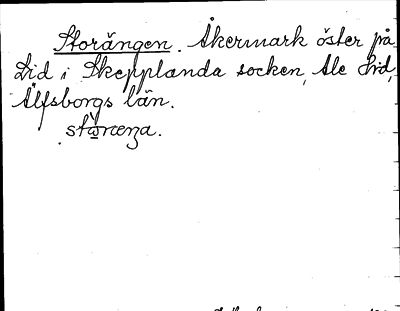 Storängen. Åkermark öster på
Lid i Skepplanda socken, Ale hd,
Älfsborgs län.